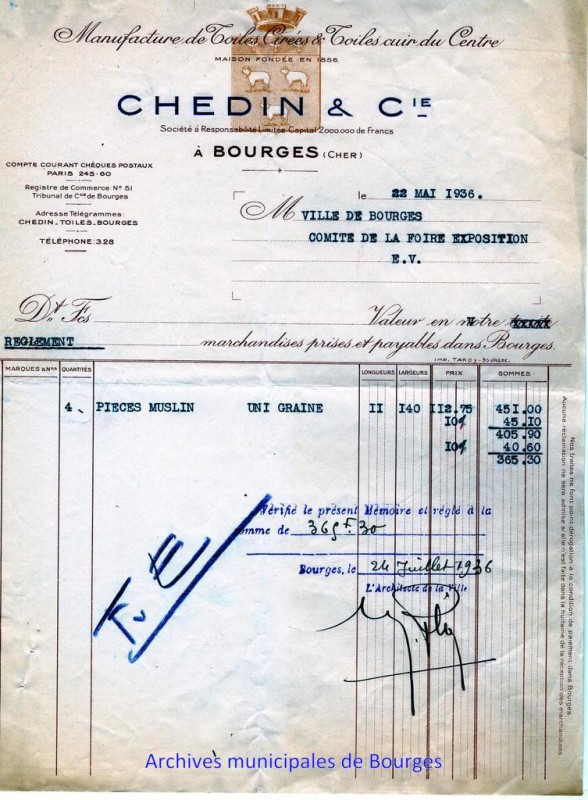 Manufacture de Toiles Cirées & Toiles cuir du Centre
MAISON FONDÉE EN 1856
CHEDIN & CIE
Société à Responsabilité Limitée Capital 2.000.000 de Francs
À BOURGES (CHER)
COMPTE COURANT CHÈQUES POSTAUX
PARIS 245-60
Registre de Commerce N° 51
Tribunal de Cce de Bourges
Adresse Télégrammes:
CHEDIN-TOILES-BOURGES
TÉLÉPHONE: 3.28
le 22 MAI 1936.
M VILLE DE BOURGES
COMITE DE LA FOIRE EXPOSITION
E.V.
Dt Fcs Valeur en Votre xxxxx
REGLEMENT marchandises prises et payables dans Bourges.
IMP. TARDY-BOURGES.
MARQUES & Nos QUANTITÉS LONGUEURS LARGEURS PRIX SOMMES
4 PIECES MUSLIN UNI GRAINE II I40 II2.75 451.00
10% 45.10
405.90
10% 40.60
365.30
Vérifié le présent Mémoire et réglé à la
somme de 365F.30
Bourges, le 24 Juillet 1936
L'Architecte de la Ville
Nos traites ne font point dérogation à la condition de paiement dans Bourges
Aucune réclamation ne sera admise si elle n'est faite dans la huitaine de la réception des marchandises
Archives municipales de Bourges